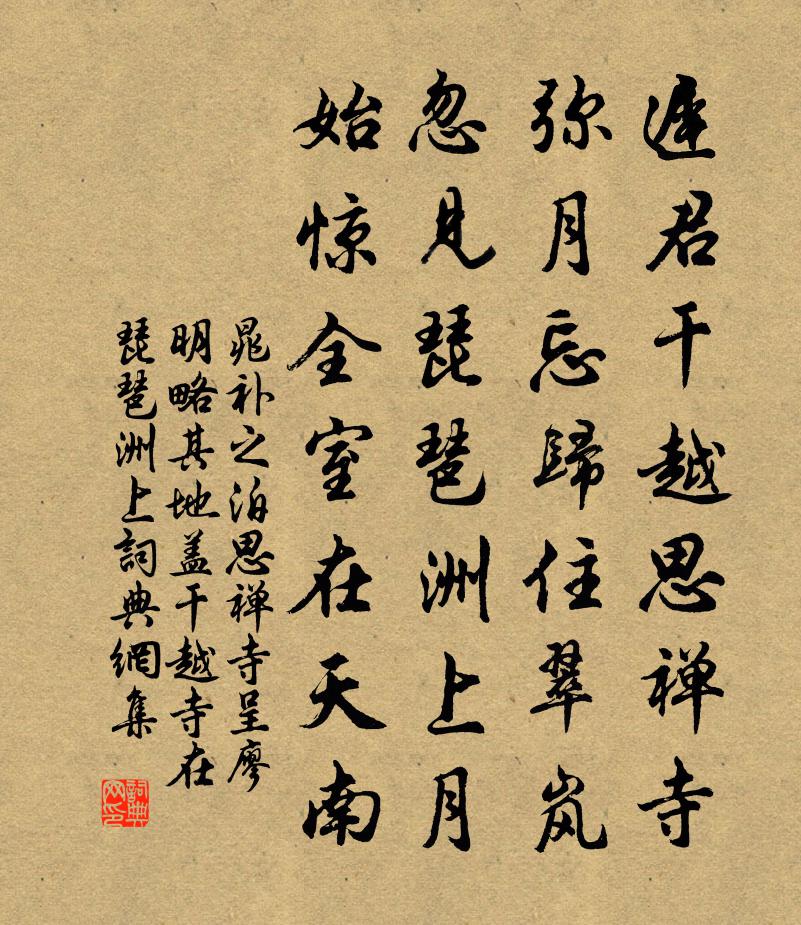 遲君干越思禅寺
弥月忘歸住翠岚
忽见琵琶洲上月
始惊全室在天南
晁补之泊思禅寺呈廖
明略其地盖干越寺在
琵琶洲上詞典網集
詞典网印